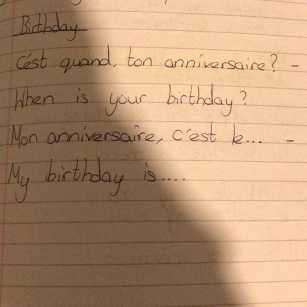 Birthday
C'est quand, ton anniversaire? -
When is your birthday?
Mon anniversaire, c'est le... -
My birthday is....